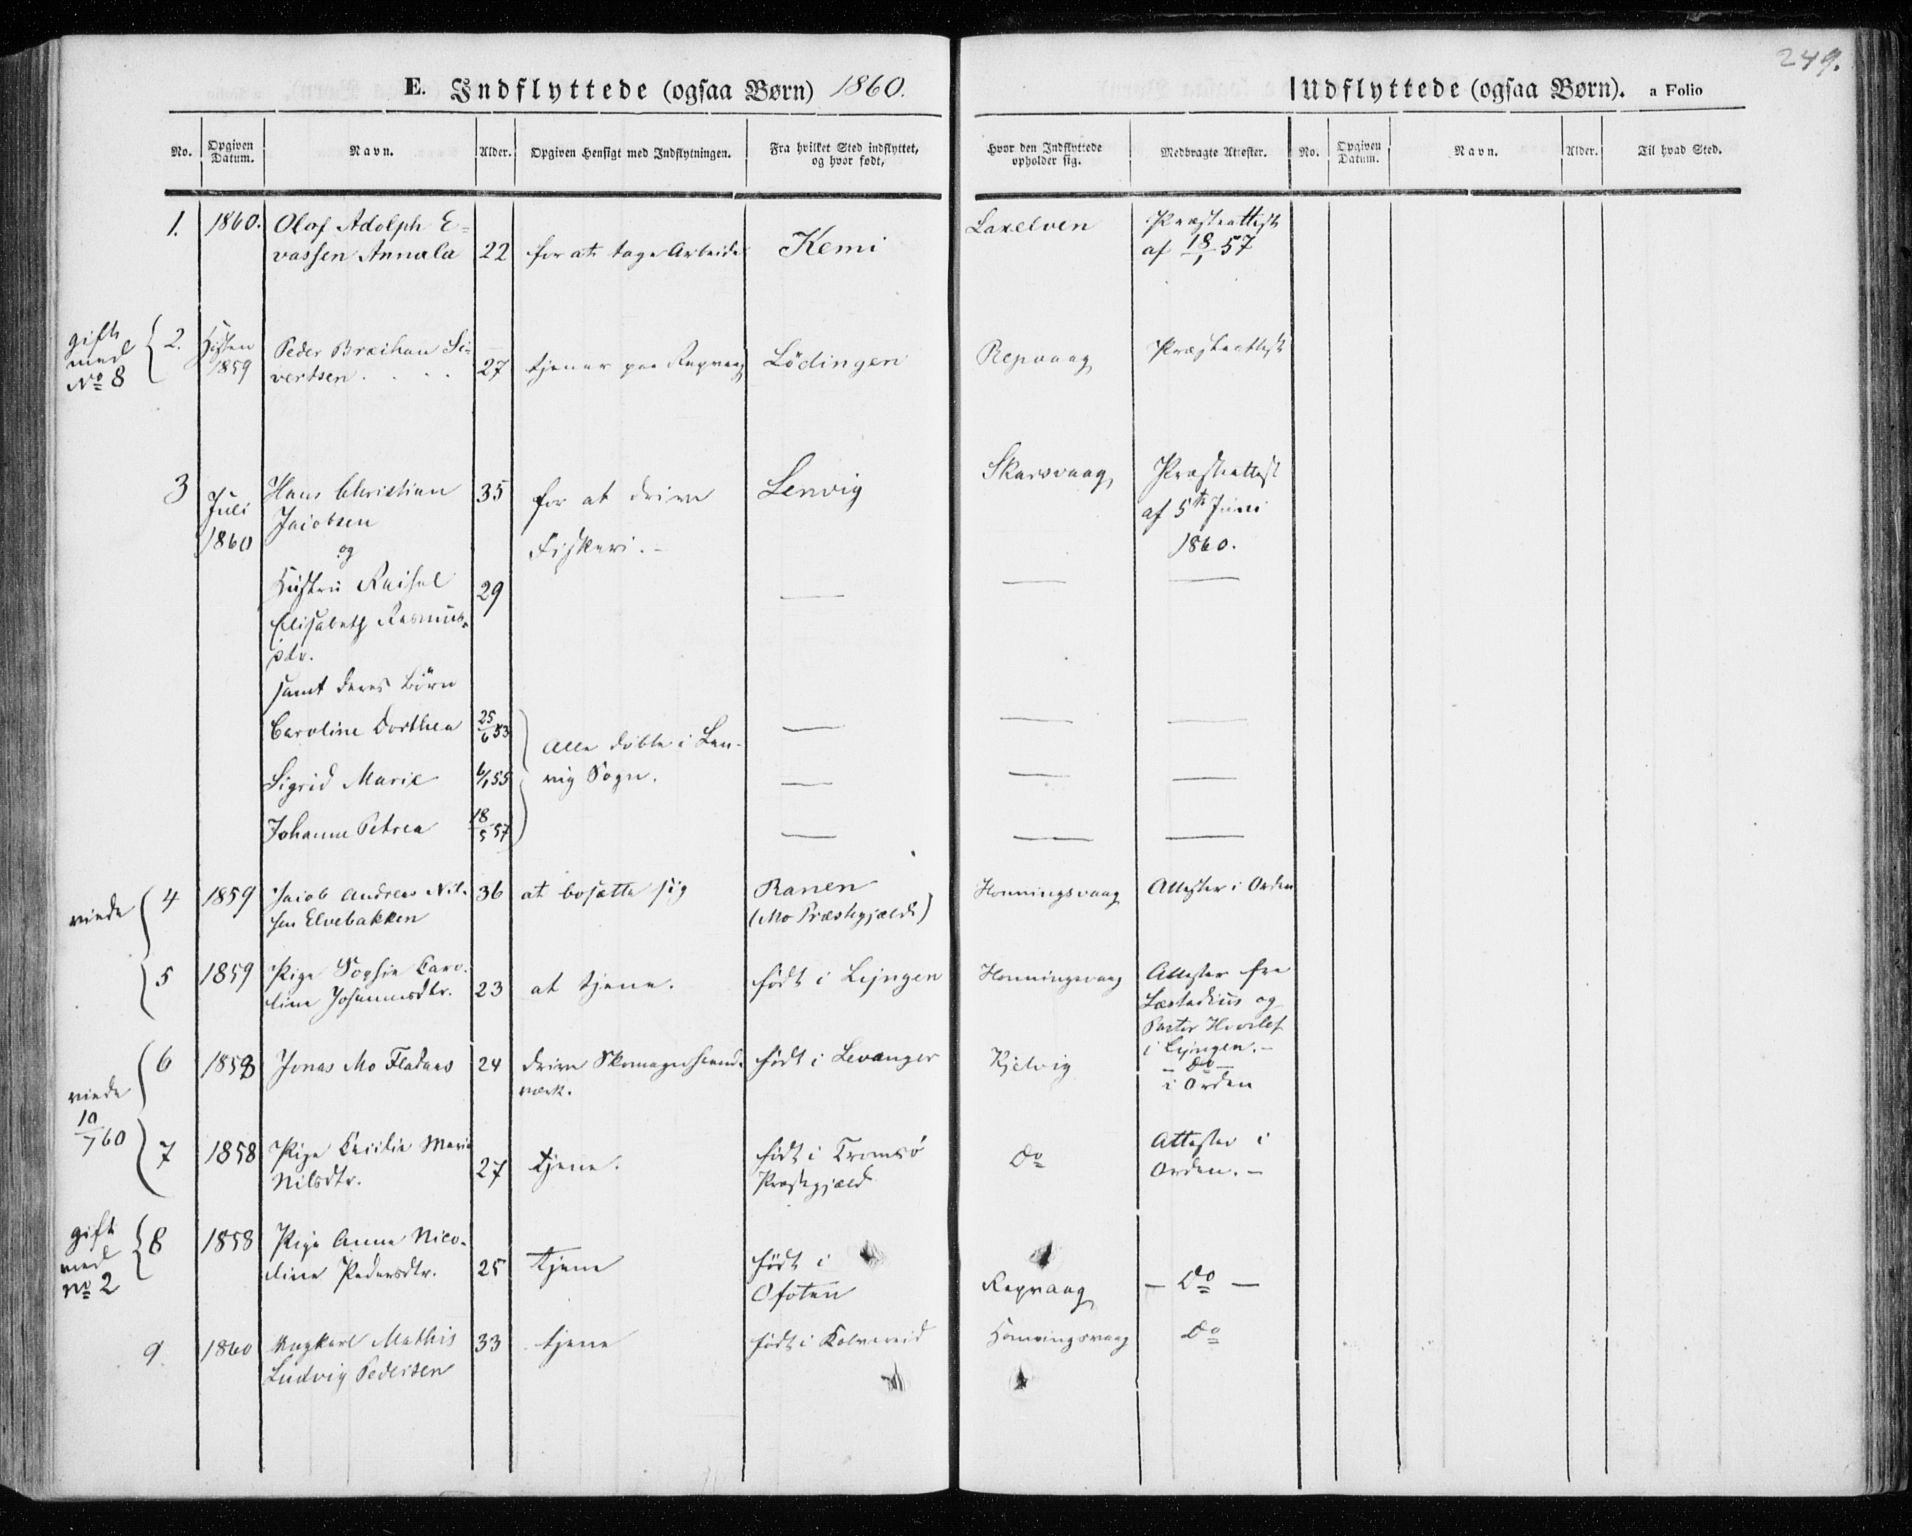 249.
E. Indflyttede (ogsaa Børn) 1860.
Indflyttede (ogsaa Børn). a Folio
No. Opgiven Datum. Navn. Alder. Opgiven Hensigt med Indflytningen. Fra hvilket Sted indflyttet, og hvor født, Hvor den Indflyttede opholder sig. Medbragte Attester. No. Opgiven Datum. Navn. Alder. Til hvad Sted.
1. 1860. Olof Adolph E- Laxelven Præsteattest
vassen Annala 22 for at tage Arbeide Kemi af 18/1 57
gift
med
No 8
2. Høsten Peder Si- Repvaag Præsteattest
1859 vertsen . . . . 27 tjener paa Repvaag Lödingen
3 Juli Hans Christian 35 for at drive Lenvig Skarsvaag Præsteattest
1860 Jacobsen Fiskeri. - af 5te Juni
og 1860.
Hustru
Elisabeth Rasmus- 29
dtr.
samt deres Börn
Caroline Dorthea 25/6 53 Alle døbte i Len-
Sigrid Marie 6/1 55 vig Sogn.
Johanna Petrea 18/5 57
viede
4 1859 Jacob Andreas Nil- 36 at bosætte sig Ranen Honningsvaag Attester i Orden
sen Elvebakken (Mo Præstegjæld)
5 1859 Pige Sophie Caro- født i Lyngen Honningsvaag Attester fra
line Johannesdtr. 23 at tjene. Læstadius og
Pastor
i Lyngen. -
viede
10/7 60
6 1858 Jonas Mo 24 drive Skomagerhaand- født i Levanger Kjelvig - Do -
værk. i Orden
7 1858 Pige Cecilie Marie født i Tromsö Do Attester i
Nilsdtr. 27 tjene. Præstegjæld Orden. -
gift
med
No 2
8 1858 Pige Anna Nico-
line Pedersdtr. 25 tjene født i
Ofoten Repvaag - Do -
9. 1860 Ungkarl Mathis 33 tjene født i Kolvereid Honningsvaag Do
Ludvig Pedersen